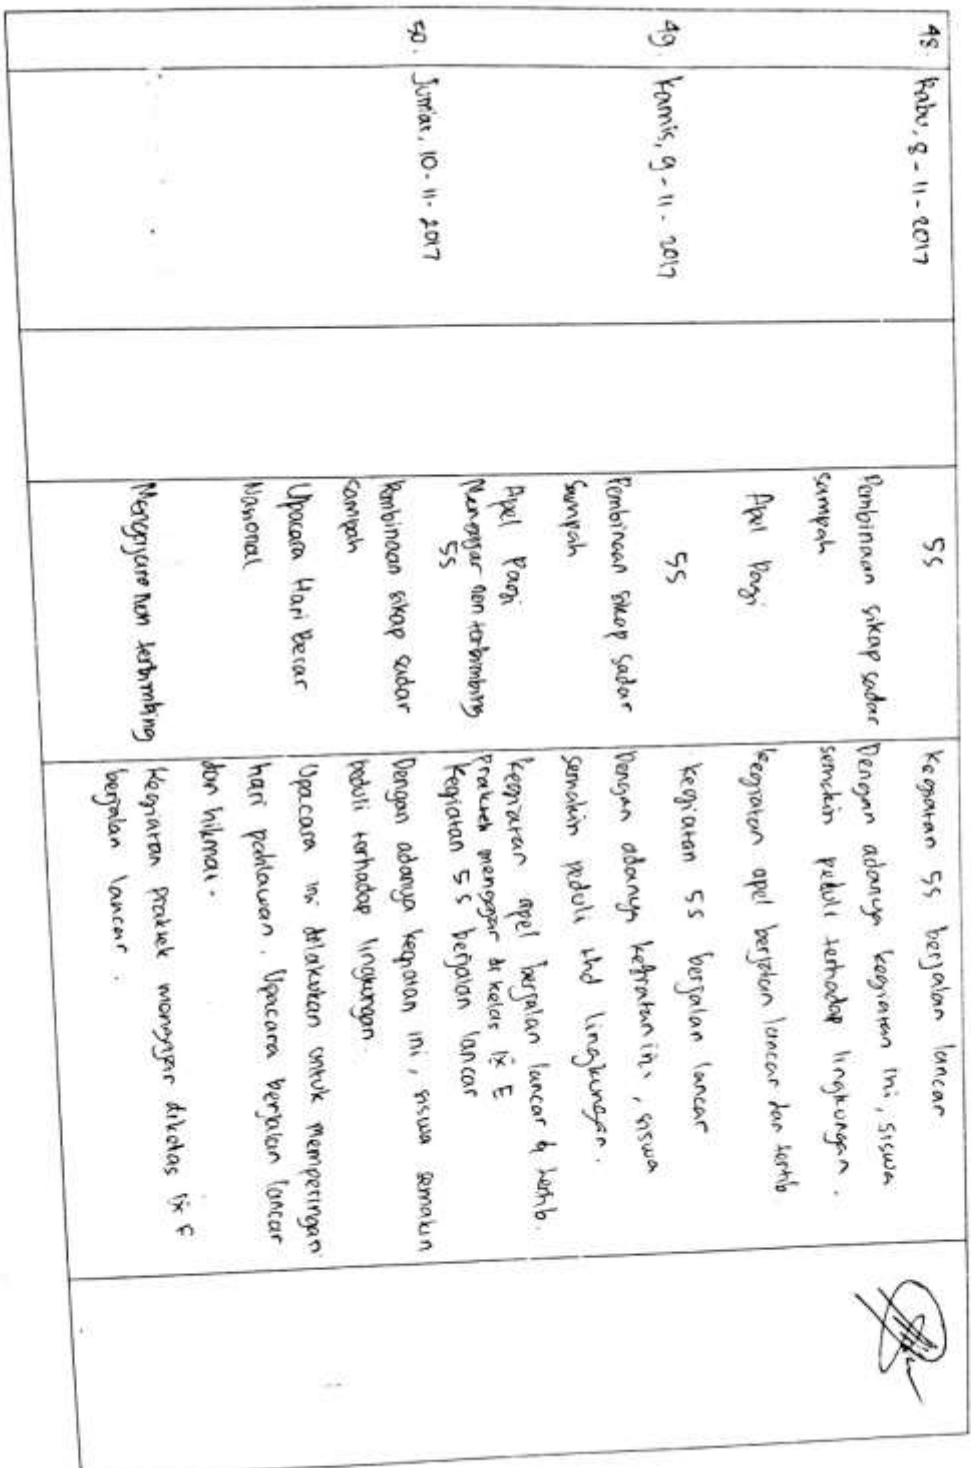 48. Rabu, 8 - 11 - 2017
5S
Kegiatan 5S berjalan lancar.
Pembinaan sikap sadar
sampah
Dengan adanya kegiatan ini, siswa
semakin peduli terhadap lingkungan.
Apel Pagi
Kegiatan apel berjalan lancar dan tertib
49. Kamis, 9 - 11 - 2017
5S
Kegiatan 5S berjalan lancar
Pembinaan sikap sadar
Sampah
Dengan adanya kegiatan ini, siswa
semakin peduli thd lingkungan.
Apel Pagi
Kegiatan apel berjalan lancar & tertib.
Mengajar non terbimbing
Praktek mengajar di kelas IX E
50. Jumat, 10 - 11 - 2017
5S
Kegiatan 5S berjalan lancar
Pembinaan sikap sadar
sampah
Dengan adanya kegiatan ini, siswa semakin
peduli terhadap lingkungan.
Upacara Hari Besar
Nasional
Upacara ini dilakukan untuk memperingati
hari pahlawan. Upacara berjalan lancar
dan hikmat.
Mengajar non terbimbing
Kegiatan praktek mengajar dikelas IX F
berjalan lancar.